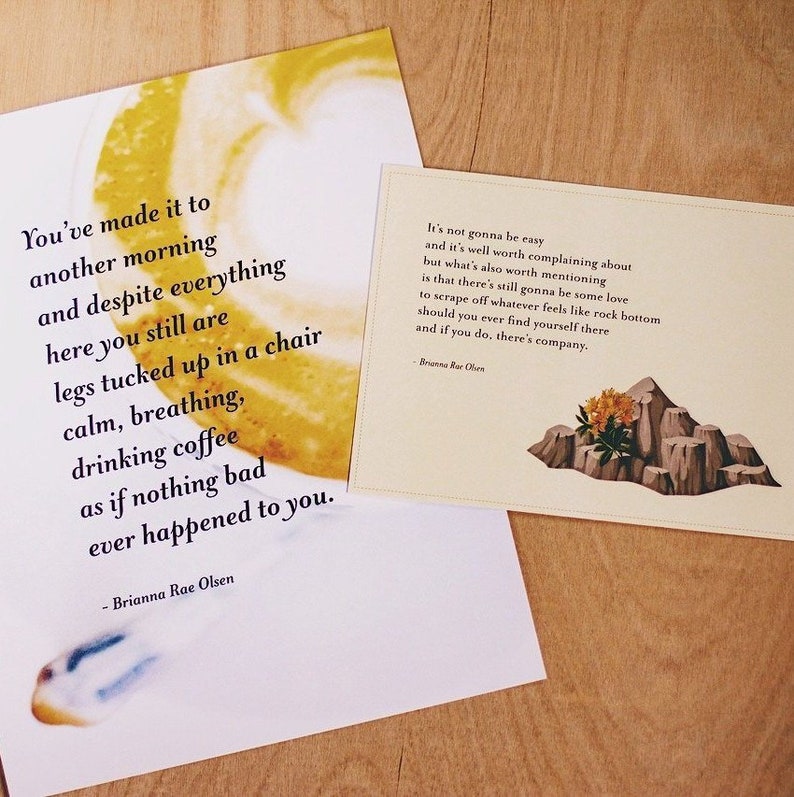 You've made it to
another morning
and despite everything
here you still are
legs tucked up in a chair
calm, breathing,
drinking coffee
as if nothing bad
ever happened to you.
- Brianna Rae Olsen
It's not gonna be easy
and it's well worth complaining about
but what's also worth mentioning
is that there's still gonna be some love
to scrape off whatever feels like rock bottom
should you ever find yourself there
and if you do, there's company.
- Brianna Rae Olsen